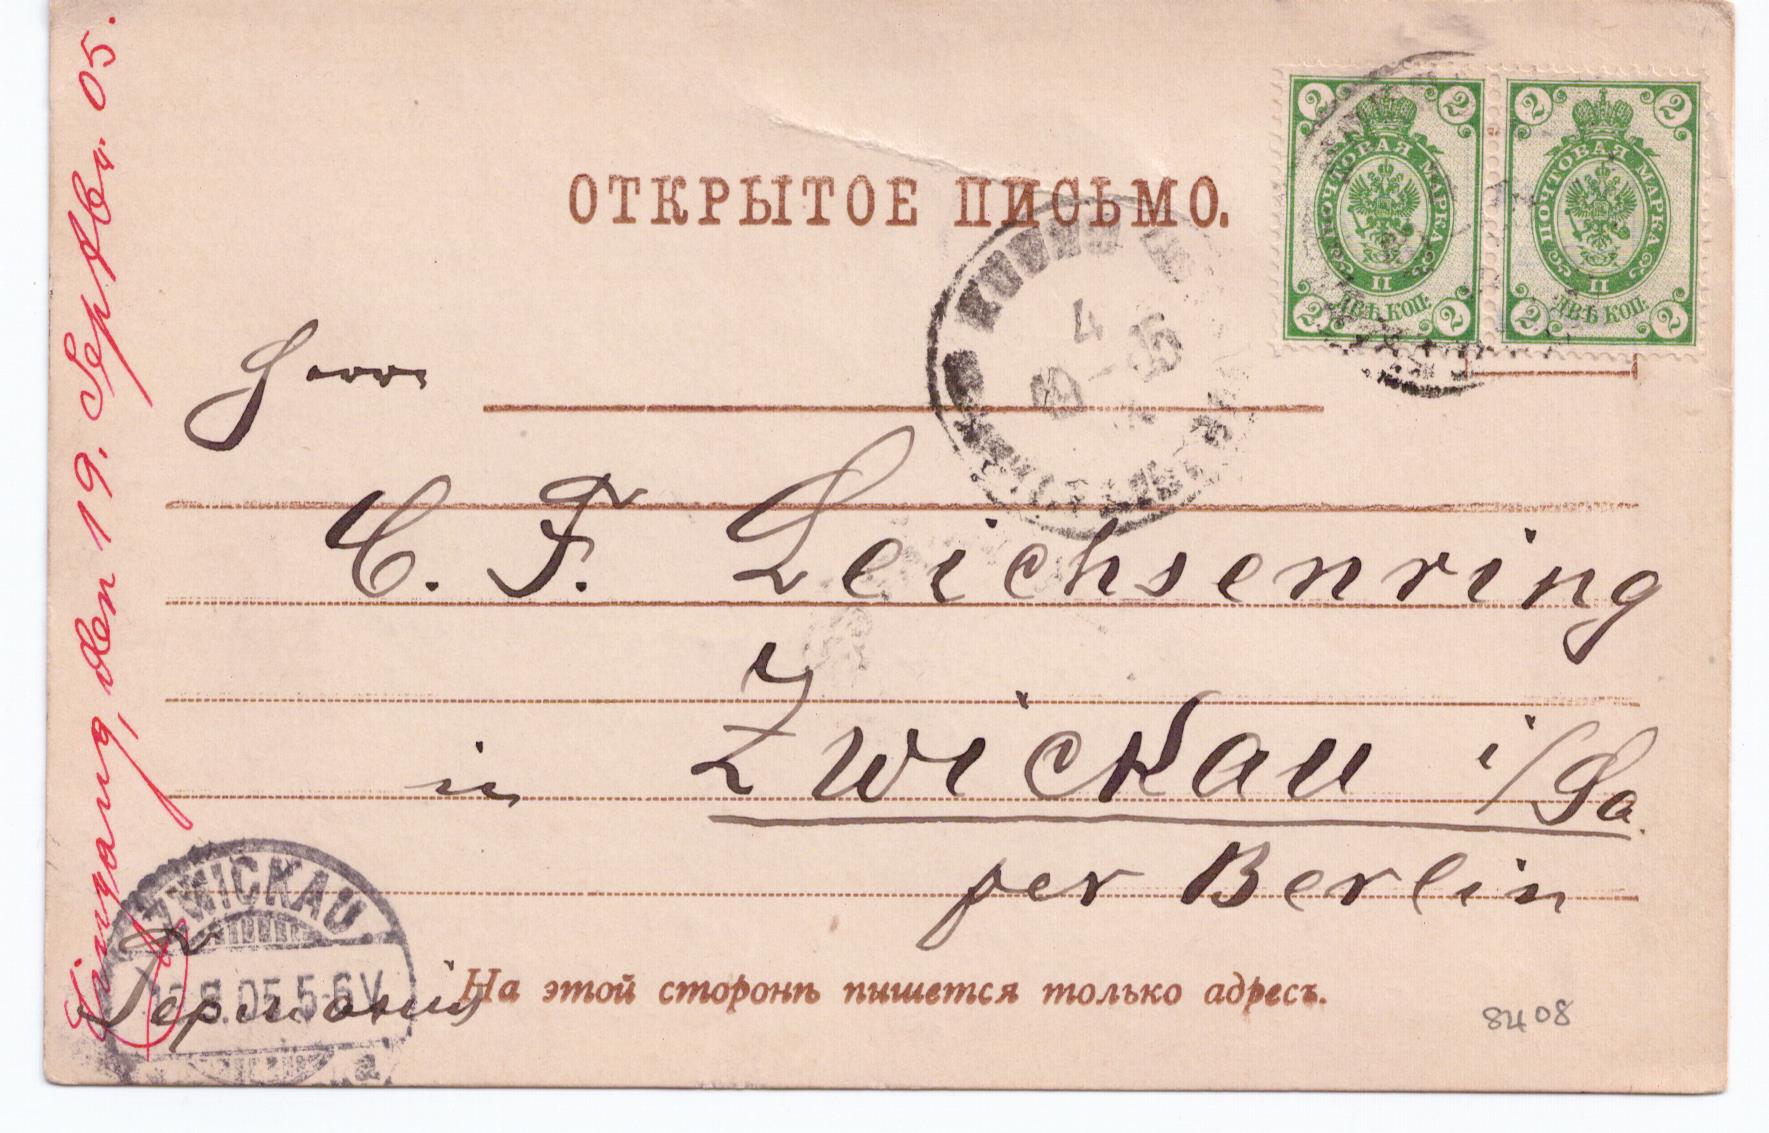 ОТКРЫТОЕ ПИСЬМО.
2 2
ПОЧТОВАЯ МАРКА
II
ДВѢ КОП.
2 2
2 2
ПОЧТОВАЯ МАРКА
II
ДВѢ КОП.
2 2
Herrn
C. F. Leichsenring
in Zwickau i/Sa.
per Berlin
Германія
На этой сторонѣ пишется только адресъ.
8408
Eingang, den 19. Septbr. 05.
ZWICKAU
05.5-6V.
a